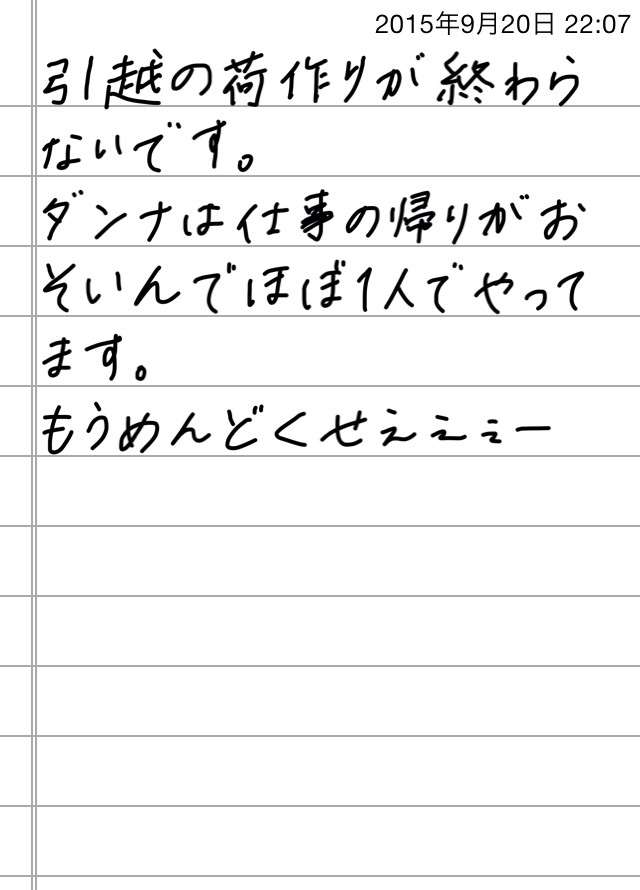 2015年9月20日 22:07
引越の荷作りが終わら
ないです。
ダンナは仕事の帰りがお
そいんでほぼ1人でやって
ます。
もうめんどくせえええー